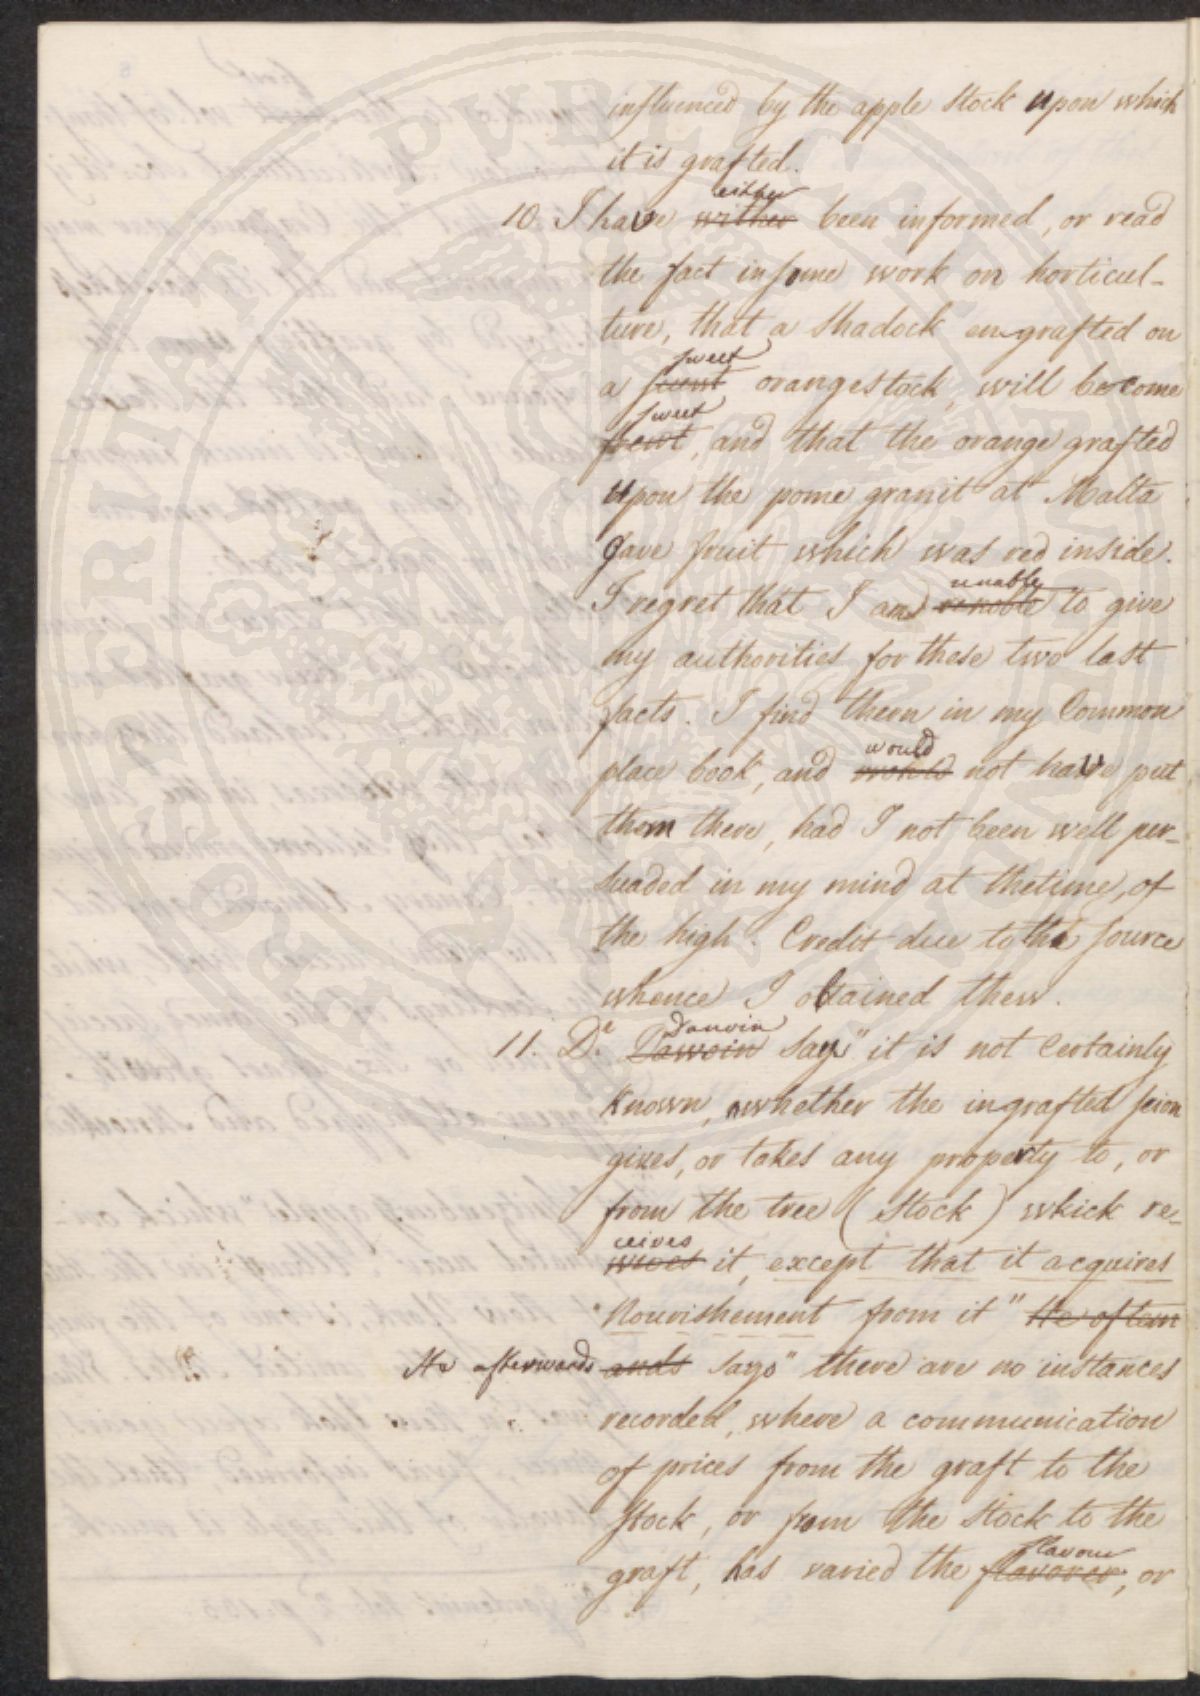 influenced by the apple stock upon which
it is grafted.
either
10. I have wither been informed, or read
the fact in some work on horticul-
ture, that a Shadock en-grafted on
sweet
a orange stock, will become
sweet
, and that the orange grafted
upon the pome granit at Malta
gave fruit which was red inside.
unable
I regret that I am to give
my authorities for these two last
facts. I find them in my Common
would
place book, and not have put
them there, had I not been well per-
suaded in my mind at the time, of
the high Credit due to the source
whence I obtained them.
Darwin
11. Dr. Dawoin says "it is not Certainly
Known, whether the ingrafted scion
gives, or takes any property to, or
from the tree (Stock) which re-
ceives
it, except that it acquires
"Nourishement from it" He oftern
He afterwards ands says "there are no instances
recorded, where a communication
of prices from the graft to the
stock, or from the Stock to the
flavour
graft, has varied the flavorer, or
PROSPERITATI PVBLICAE